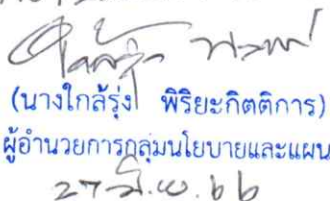 (นางใกล้รุ่ง พิริยะกิตติการ)
ผู้อำนวยการกลุ่มนโยบายและแผน
27 มิ.ย. 66